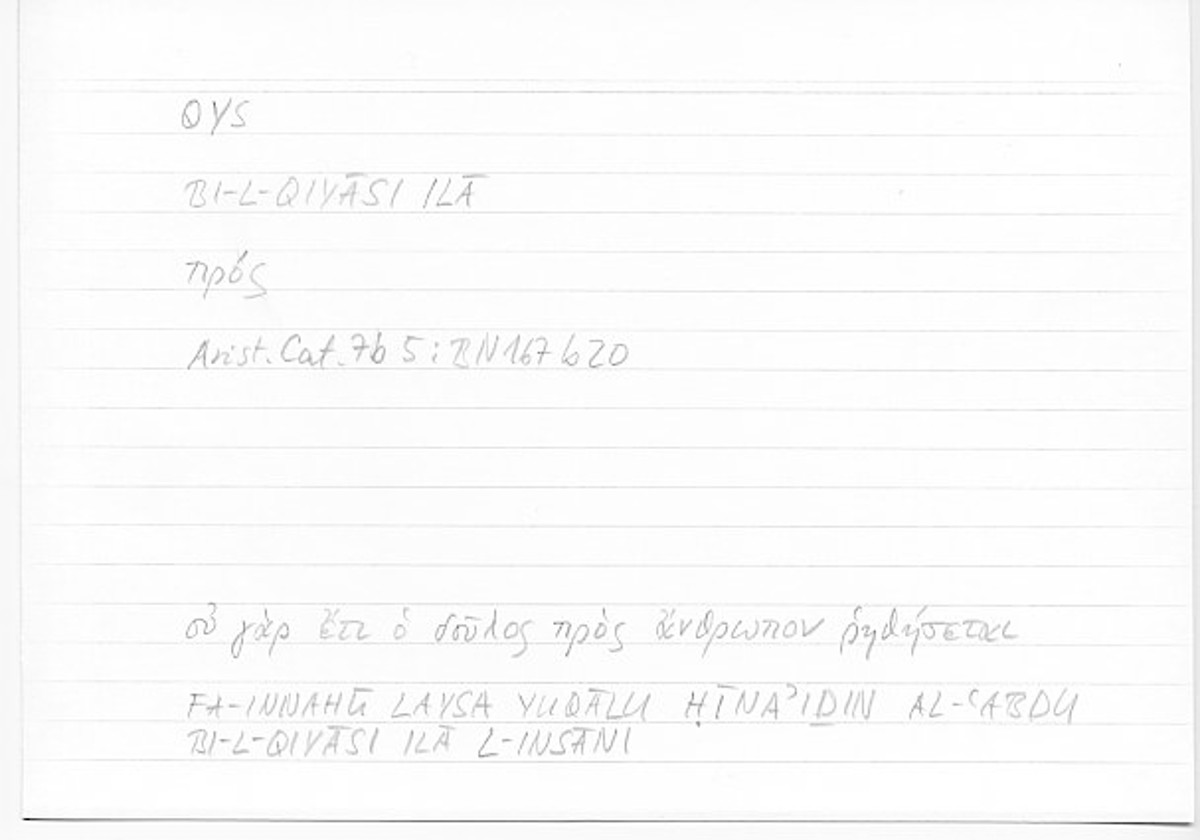 QYS
BI-L-QIYĀSI ILĀ
πρός
Arist. Cat. 7b 5 : BN 167 b 20
οὐ γὰρ ἔτι ὁ δοῦλος πρὸς ἄνθρωπον ῥηθήσεται
FA-INNAHŪ LAYSA YUQĀLU ḤĪNAʾIḎIN AL-ʿABDU
BI-L-QIYĀSI ILĀ L-INSĀNI